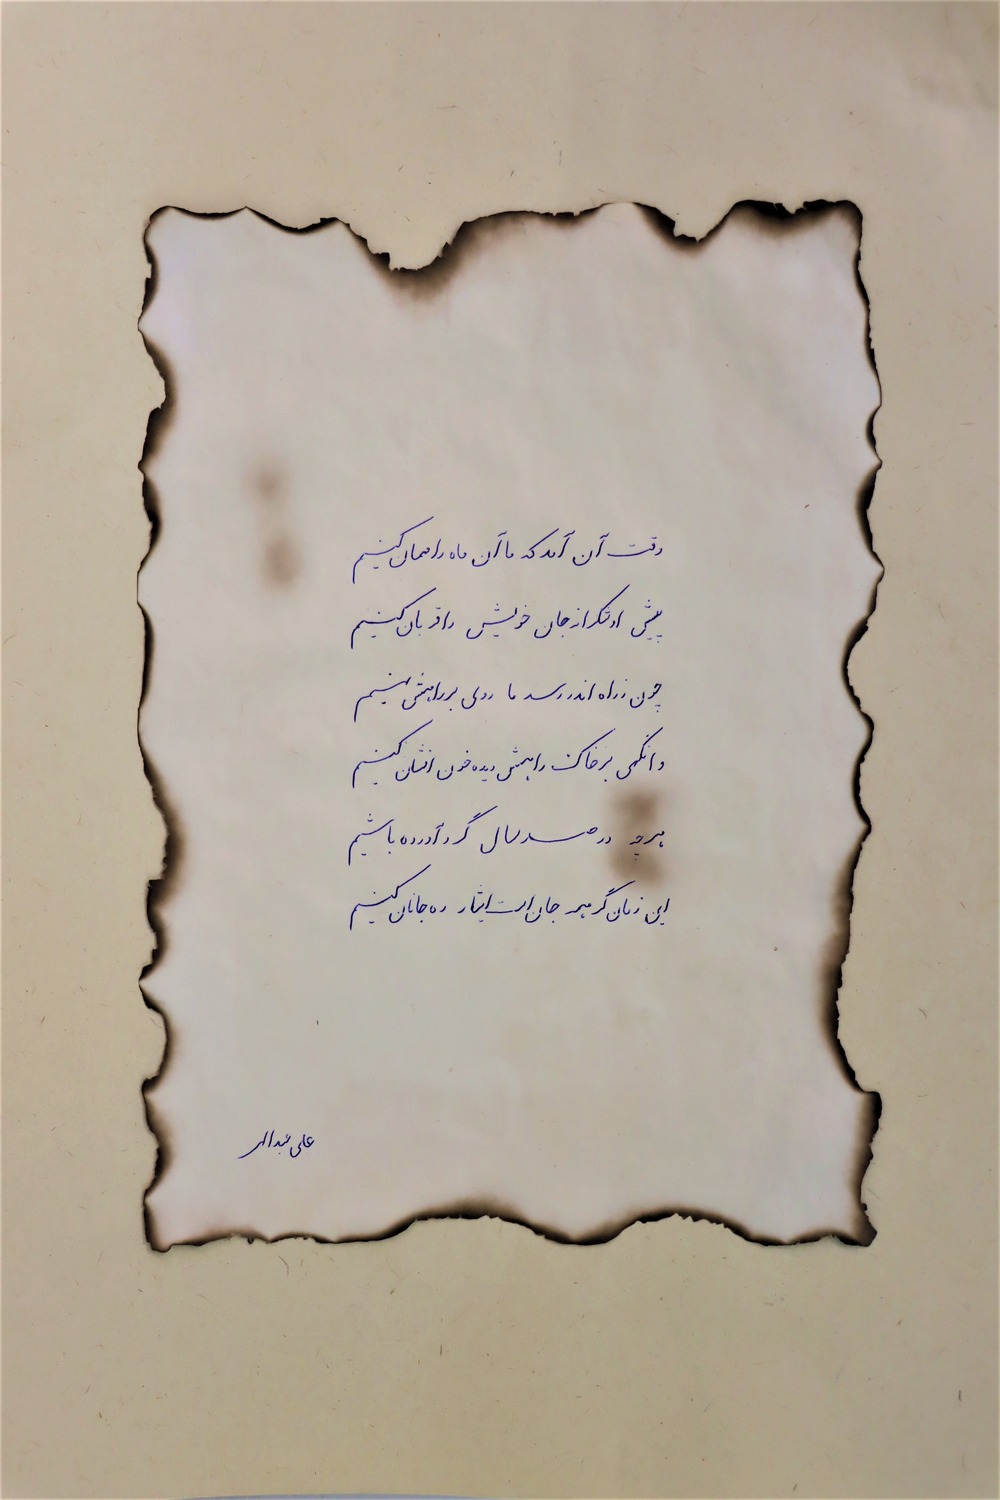 وقت آن آمد که ما آن ماه را مهمان کنیم
پیش او شکرانه جان خویش را قربان کنیم
چون ز راه اندر رسد ما روی بر راهش نهیم
وانگهی بر خاک راهش دیده خون افشان کنیم
هرچه در صد سال گرد آورده باشیم
این زمان گر همه جان است ایثار ره جانان کنیم
علی عبدالهی